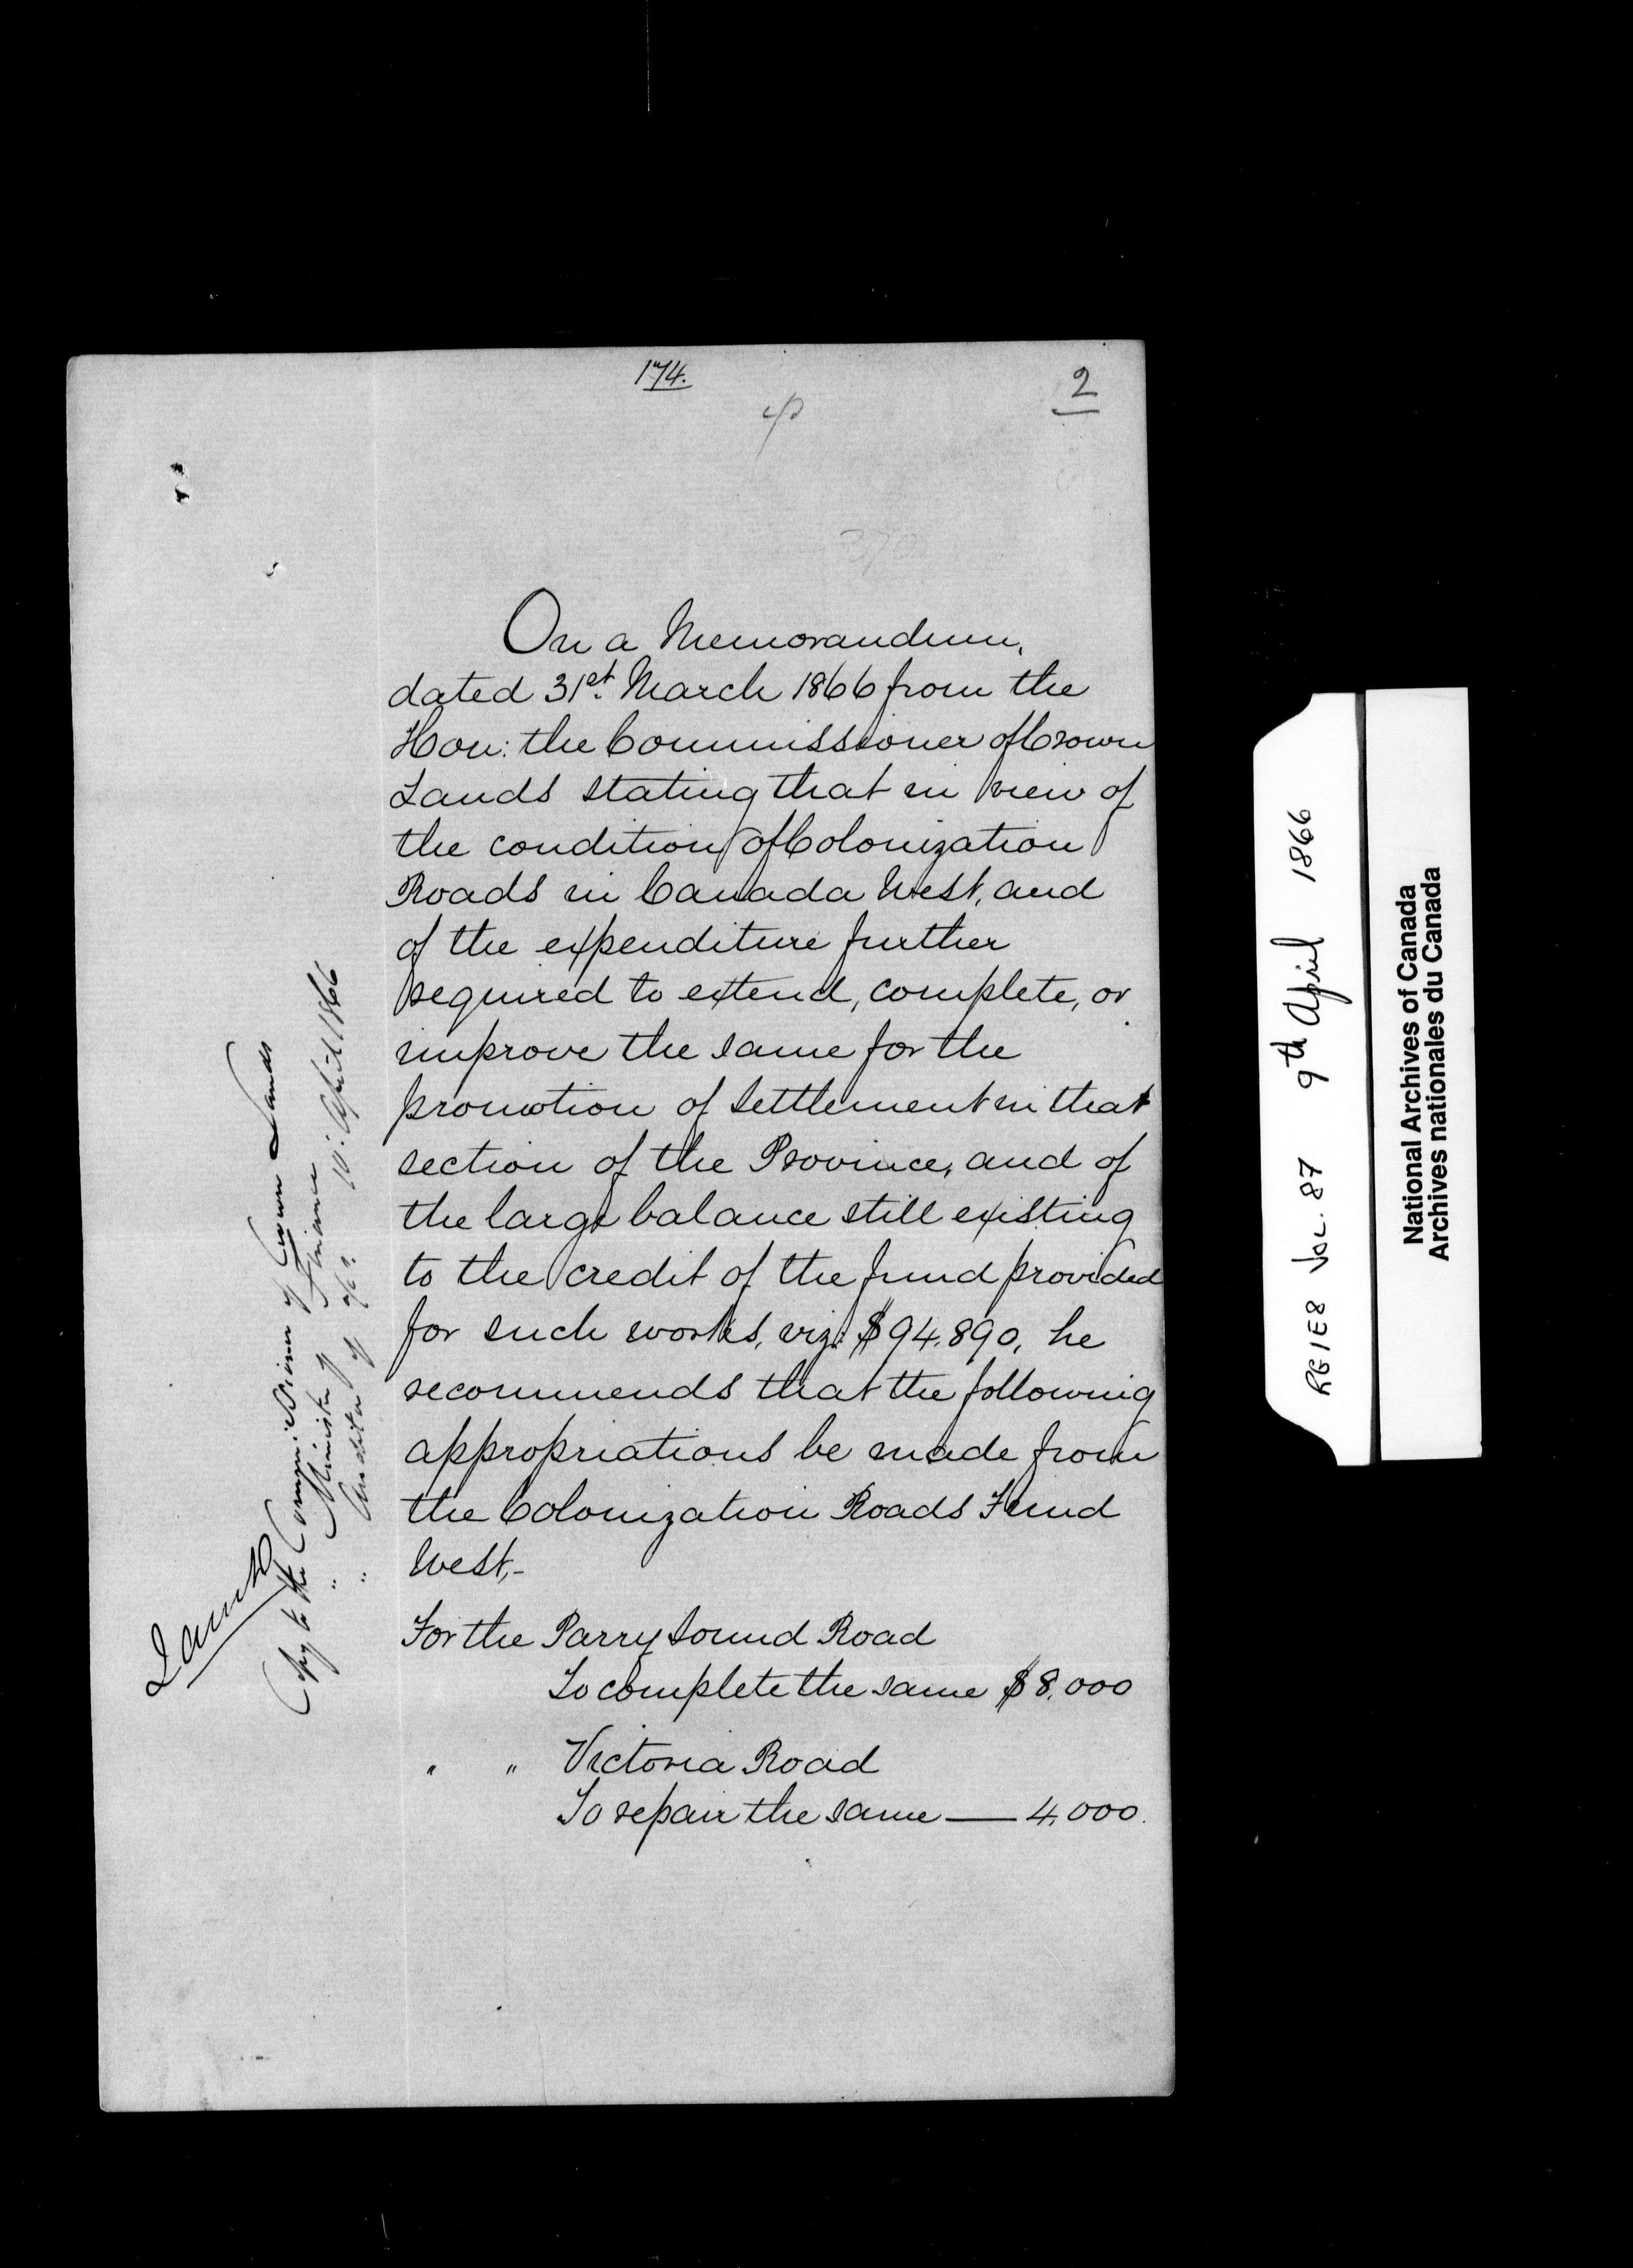 174.
2
On a Memorandum,
dated 31st. March 1866 from the
Hon: the Commissioner of Crown
Lands stating that in view of
the condition of Colonization
Roads in Canada West, and
of the expenditure further
required to extend, complete, or
improve the same for the
promotion of settlement in that
section of the Province, and of
the large balance still existing
to the credit of the fund provided
for such works, viz: $94.890, he
recommends that the following
appropriations be made from
the Colonization Roads Fund
West,-
For the Parry Sound Road
To complete the same $8.000
" " Victoria Road
To repair the same — 4,000.
Lands
Copy to the Commissioner of Crown Lands
" Minister of Finance
" Auditor 10: April 1866
RG1E8 Vol. 87 9th April 1866
National Archives of Canada
Archives nationales du Canada